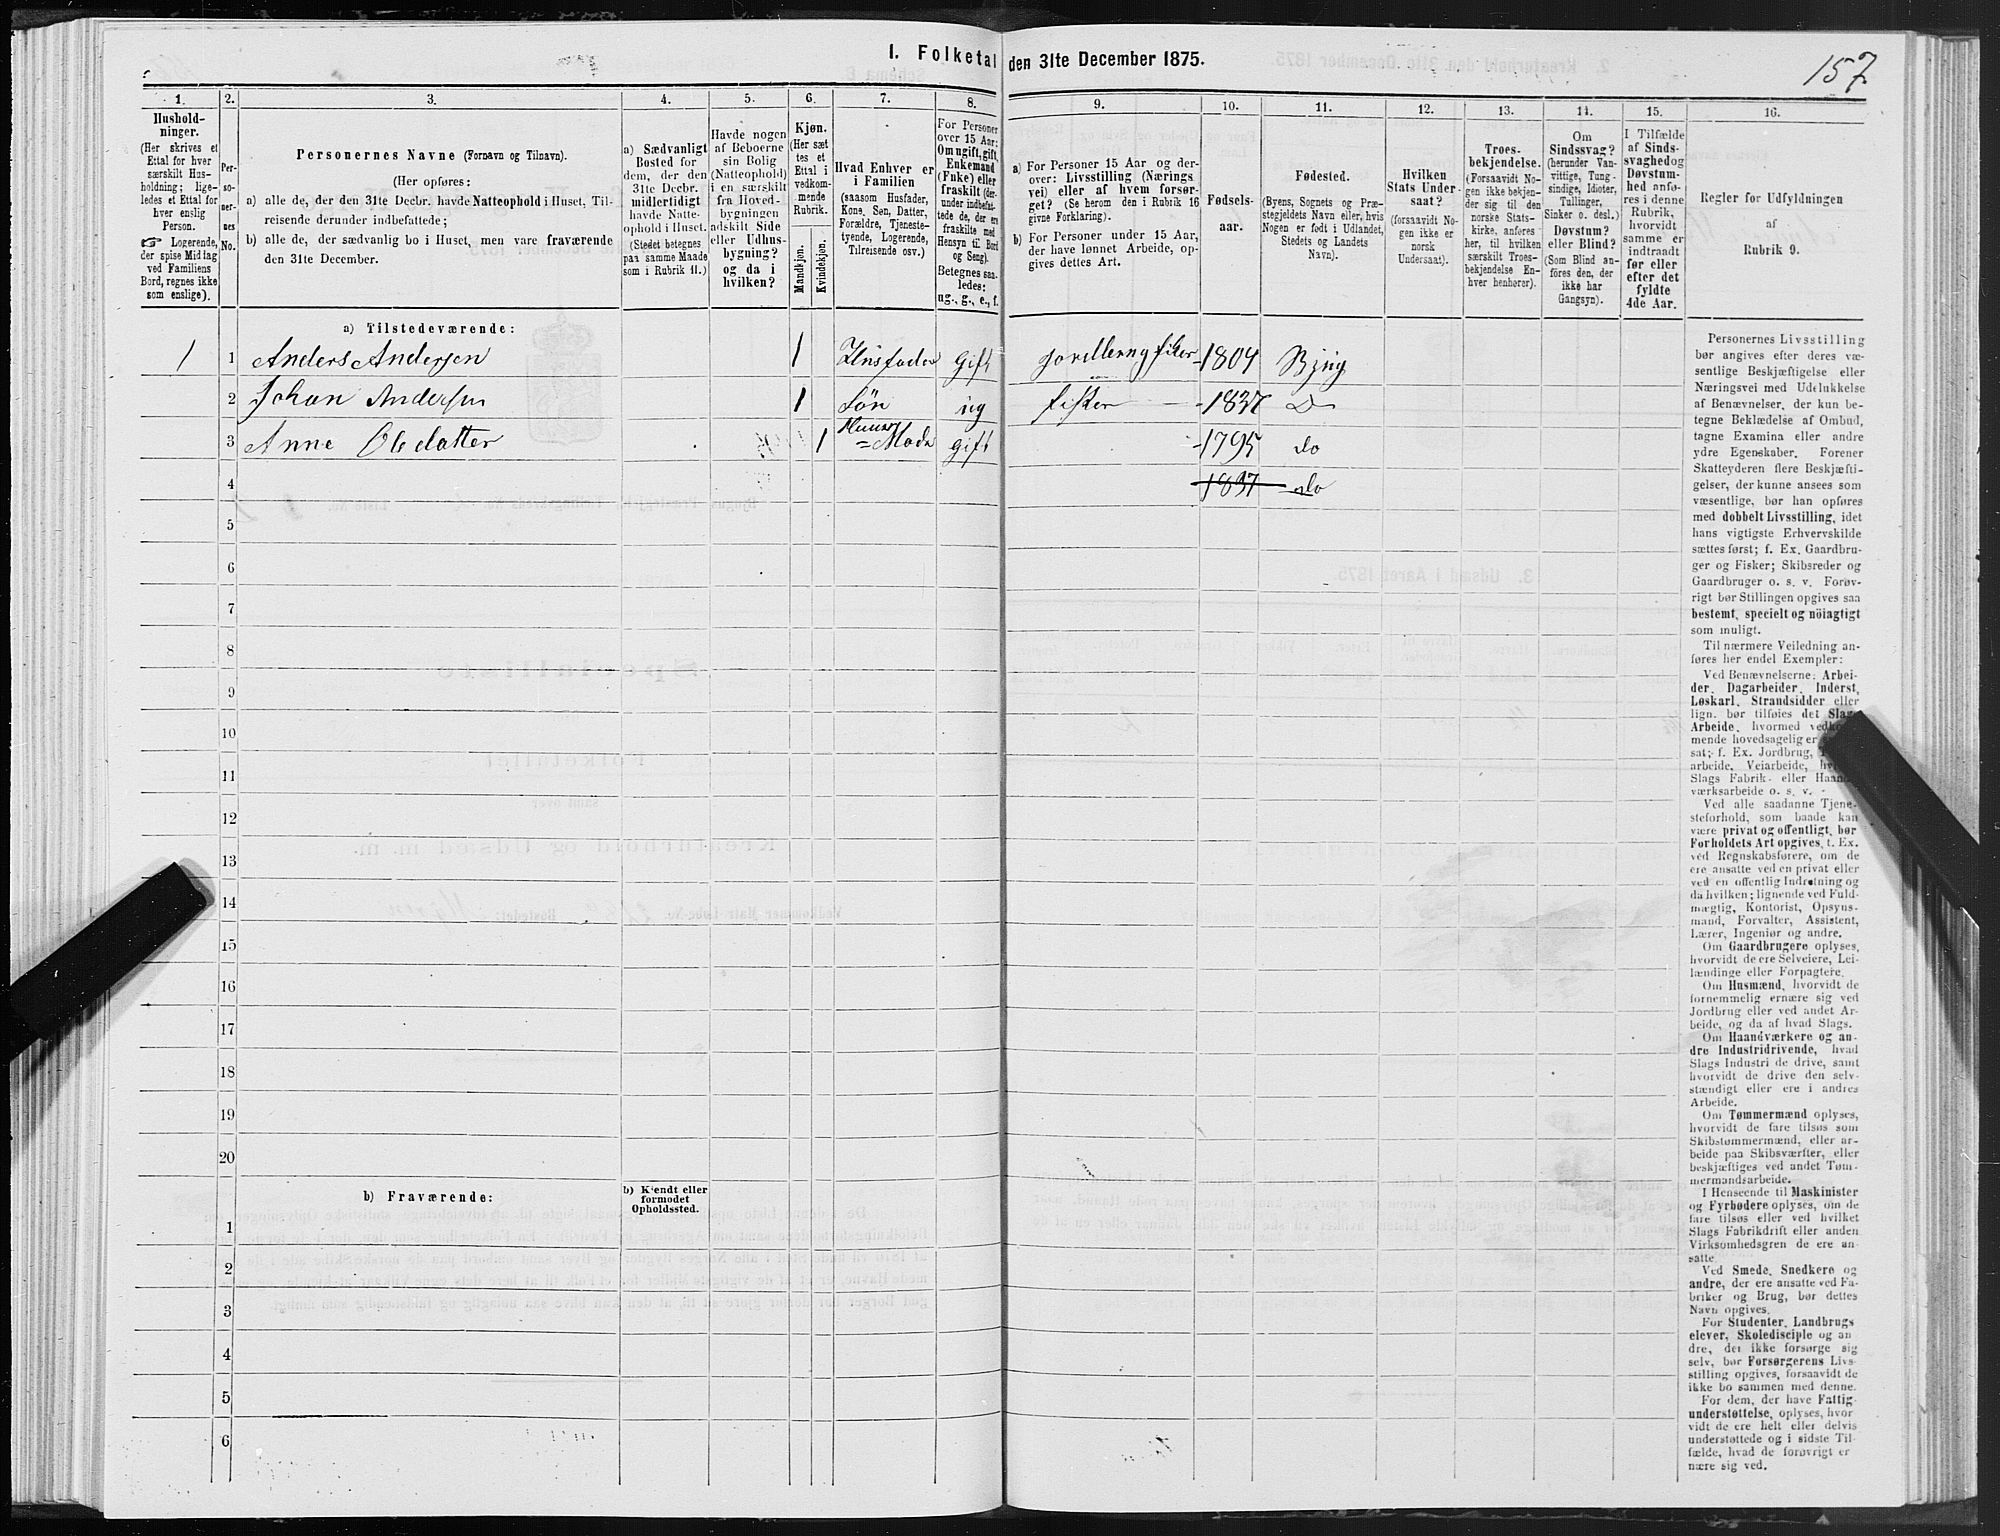 157
1. Folketal den 31te December 1875.
1. 2. 3. 4. 5. 6. 7. 8. 9. 10. 11. 12. 13. 14. 15. 16.
Hushold-
ninger.
(Her skrives et
Ettal for hver
særskilt Hus-
holdning; lige-
ledes et Ettal for
hver enslig
Person.
☞ Logerende,
der spise Middag
ved Familiens
Bord, regnes ikke
som enslige).
Per-
so-
ner-
nes
No.
Personernes Navne (Fornavn og Tilnavn).
(Her opføres:
a) alle de, der den 31te Decbr. havde Natteophold i Huset, Til-
reisende derunder indbefattede;
b) alle de, der sædvanlig bo i Huset, men vare fraværende
den 31te December.
a) Sædvanligt
Bosted for
dem, der den
31te Decbr.
midlertidigt
havde Natte-
ophold i Huset.
(Stedet betegnes
paa samme Maade
som i Rubrik 11.)
Havde nogen
af Beboerne
sin Bolig
(Natteophold)
i en særskilt
fra Hoved-
bygningen
adskilt Side
eller Udhus-
bygning?
og da i
hvilken?
Kjøn.
(Her sæt
tes et
Ettal i
vedkom-
mende
Rubrik.
Mandkjøn.
Kvindekjøn.
Hvad Enhver er
i Familien
(saasom Husfader,
Kone, Søn, Datter,
Forældre, Tjeneste-
tyende, Logerende,
Tilreisende osv.)
For Personer
over 15 Aar:
Om ugift, gift,
Enkemand
(Enke) eller
fraskilt (der-
under indbefat-
tede de, der ere
fraskilte med
Hensyn til Bord
og Seng).
Betegnes saa-
ledes:
ug., g., e., f.
a) For Personer 15 Aar og der-
over: Livsstilling (Nærings
vei) eller af hvem forsør-
get? (Se herom den i Rubrik 16
givne Forklaring).
b) For Personer under 15 Aar,
der have lønnet Arbeide, op-
gives dettes Art.
Fødsels-
aar.
Fødested.
(Byens, Sognets og Præ-
stegjeldets Navn eller, hvis
Nogen er født i Udlandet,
Stedets og Landets
Navn).
Hvilken
Stats Under-
saat?
(forsaavidt No-
gen ikke er
norsk
Undersaat).
Troes-
bekjendelse.
(Forsaavidt No-
gen ikke bekjen-
der sig til den
norske Stats-
kirke, anføres
her, til hvilken
særskilt Troes-
bekjendelse En-
hver henhører).
Om
Sindssvag?
(herunder Van-
vittige, Tung-
sindige, Idioter,
Tullinger,
Sinker o. desl.)
Døvstum?
eller Blind?
(Som Blind an-
føres den, der
ikke har
Gangsyn).
I Tilfælde
af Sinds-
svaghed og
Døvstum-
hed anfø-
res i denne
Rubrik,
hvorvidt
samme er
indtraadt
før eller
efter det
fyldte
4de Aar.
Regler for Udfyldningen
af
Rubrik 9.
a) Tilstedeværende:
1 1 Anders Andersen 1 Husfader gift Jordbrug fisker 1804 Bjug
2 Johan Andersen 1 Søn ug fisker 1837 D
3 Anne Olsdatter 1 Huus-Mode gift 1795 do
4 1837 do
5
6
7
8
9
10
11
12
13
14
15
16
17
18
19
20
b) Fraværende:
b) Kjendt eller
formodet
Opholdssted.
1
2
3
4
5
6
Personernes Livsstilling
bør angives efter deres væ-
sentlige Beskjæftigelse eller
Næringsvei med Udelukkelse
af Benævnelser, der kun be-
tegne Beklædelse af Ombud,
tagne Examina eller andre
ydre Egenskaber. Forener
Skatteyderen flere Beskjæfti-
gelser, der kunne ansees som
væsentlige, bør han opføres
med dobbelt Livsstilling, idet
hans vigtigste Erhvervskilde
sættes først; f. Ex. Gaardbru-
ger og Fisker; Skibsreder og
Gaardbruger o. s. v. Forøv-
rigt bør Stillingen opgives saa
bestemt, specielt og nöiagtigt
som muligt.
Til nærmere Veiledning an-
føres her endel Exempler:
Ved Benævnelserne: Arbei-
der, Dagarbeider, Inderst,
Løskarl, Strandsidder eller
lign. bør tilføies det Slags
Arbeide, hvormed vedkom-
mende hovedsagelig er
sat; f. Ex. Jordbrug,
arbeide, Veiarbeide,
Slags Fabrik- eller Haand-
værksarbeide o. s. v.
Ved alle saadanne Tjene-
steforhold, som baade kan
være privat og offentligt, bør
Forholdets Art opgives, f. Ex.
ved Regnskabsførere, om de
ere ansatte ved en privat eller
ved en offentlig Indretning og
da hvilken; lignende ved Fuld-
mægtig, Kontorist, Opsyns-
mand, Forvalter, Assistent,
Lærer, Ingeniør og andre.
Om Gaardbrugere oplyses,
hvorvidt de ere Selveiere, Lei-
lændinge eller Forpagtere.
Om Husmænd, hvorvidt de
fornemmelig ernære sig ved
Jordbrug eller ved andet Ar-
beide, og da af hvad Slags.
Om Haandværkere og an-
dre Industridrivende, hvad
Slags Industri de drive, samt
hvorvidt de drive den selv-
stændigt eller ere i andres
Arbeide.
Om Tømmermænd oplyses,
hvorvidt de fare tilsøs som
Skibstømmermænd, eller ar-
beide paa Skibsværfter, eller
beskjæftiges ved andet Tøm-
mermandsarbeide.
I Henseende til Maskinister
og Fyrbødere oplyses, om de
fare tilsøs eller ved hvilket
Slags Fabrikdrift eller anden
Virksomhedsgren de ere an-
satte.
Ved Smede, Snedkere og
andre, der ere ansatte ved Fa-
briker og Brug, bør dettes
Navn opgives.
For Studenter, Landbrugs
elever, Skoledisciple og an
dre, der ikke forsørge sig
selv, bør Forsørgerens Livs-
stilling opgives, forsaavidt de
ikke bo sammen med denne.
For dem, der have Fattig-
understøttelse, oplyses, hvor
vidt de ere helt eller delvis
understøttede og i sidste Til-
fælde, hvad de forøvrigt er
nære sig ved.